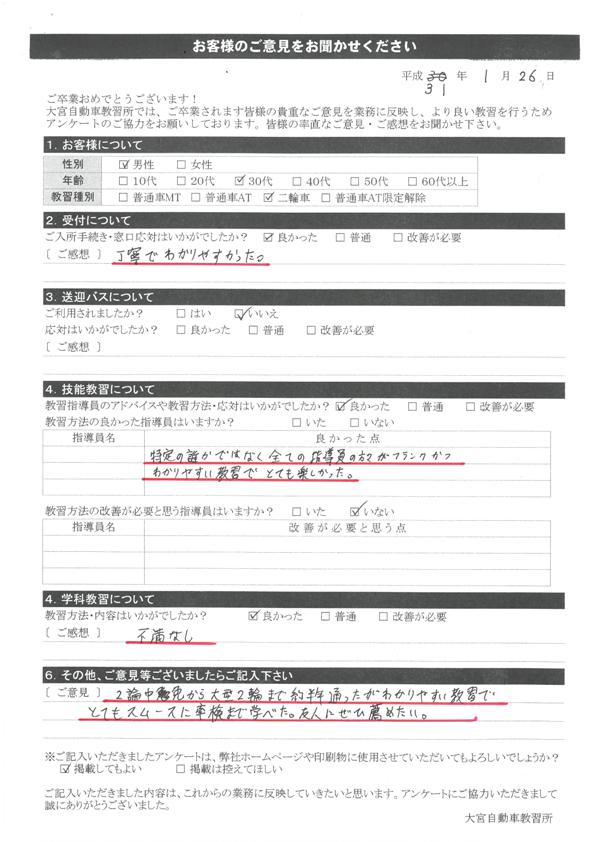 お客様のご意見をお聞かせください
平成 30 年 1 月 26 日
31
ご卒業おめでとうございます！
大宮自動車教習所では、ご卒業されます皆様の貴重なご意見を業務に反映し、より良い教習を行うため
アンケートのご協力をお願いしております。皆様の率直なご意見・ご感想をお聞かせ下さい。
1. お客様について
性別 ☑男性 □女性
年齢 □10代 □20代 ☑30代 □40代 □50代 □60代以上
教習種別 □普通車MT □普通車AT ☑二輪車 □普通車AT限定解除
2. 受付について
ご入所手続き・窓口応対はいかがでしたか？ ☑良かった □普通 □改善が必要
[ ご感想 ] 丁寧でわかりやすかった。
3. 送迎バスについて
ご利用されましたか？ □はい ☑いいえ
応対はいかがでしたか？ □良かった □普通 □改善が必要
[ ご感想 ]
4. 技能教習について
教習指導員のアドバイスや教習方法・応対はいかがでしたか？ ☑良かった □普通 □改善が必要
教習方法の良かった指導員はいますか？ □いた □いない
指導員名 良かった点
特定の誰かではなく全ての指導員の方々がフランクかつ
わかりやすい教習でとても楽しかった。
教習方法の改善が必要と思う指導員はいますか？ □いた ☑いない
指導員名 改善が必要と思う点
4. 学科教習について
教習方法・内容はいかがでしたか？ ☑良かった □普通 □改善が必要
[ ご感想 ] 不満なし
6. その他、ご意見等ございましたらご記入下さい
[ ご意見 ] 2論中免から大型2輪まで約半年通ったがわかりやすい教習で
とてもスムースに車検まで学べた。友人にぜひ薦めたい。
※ご記入いただきましたアンケートは、弊社ホームページや印刷物に使用させていただいてもよろしいでしょうか？
☑掲載してもよい □掲載は控えてほしい
ご記入いただきました内容は、これからの業務に反映していきたいと思います。アンケートにご協力いただきまして
誠にありがとうございました。
大宮自動車教習所